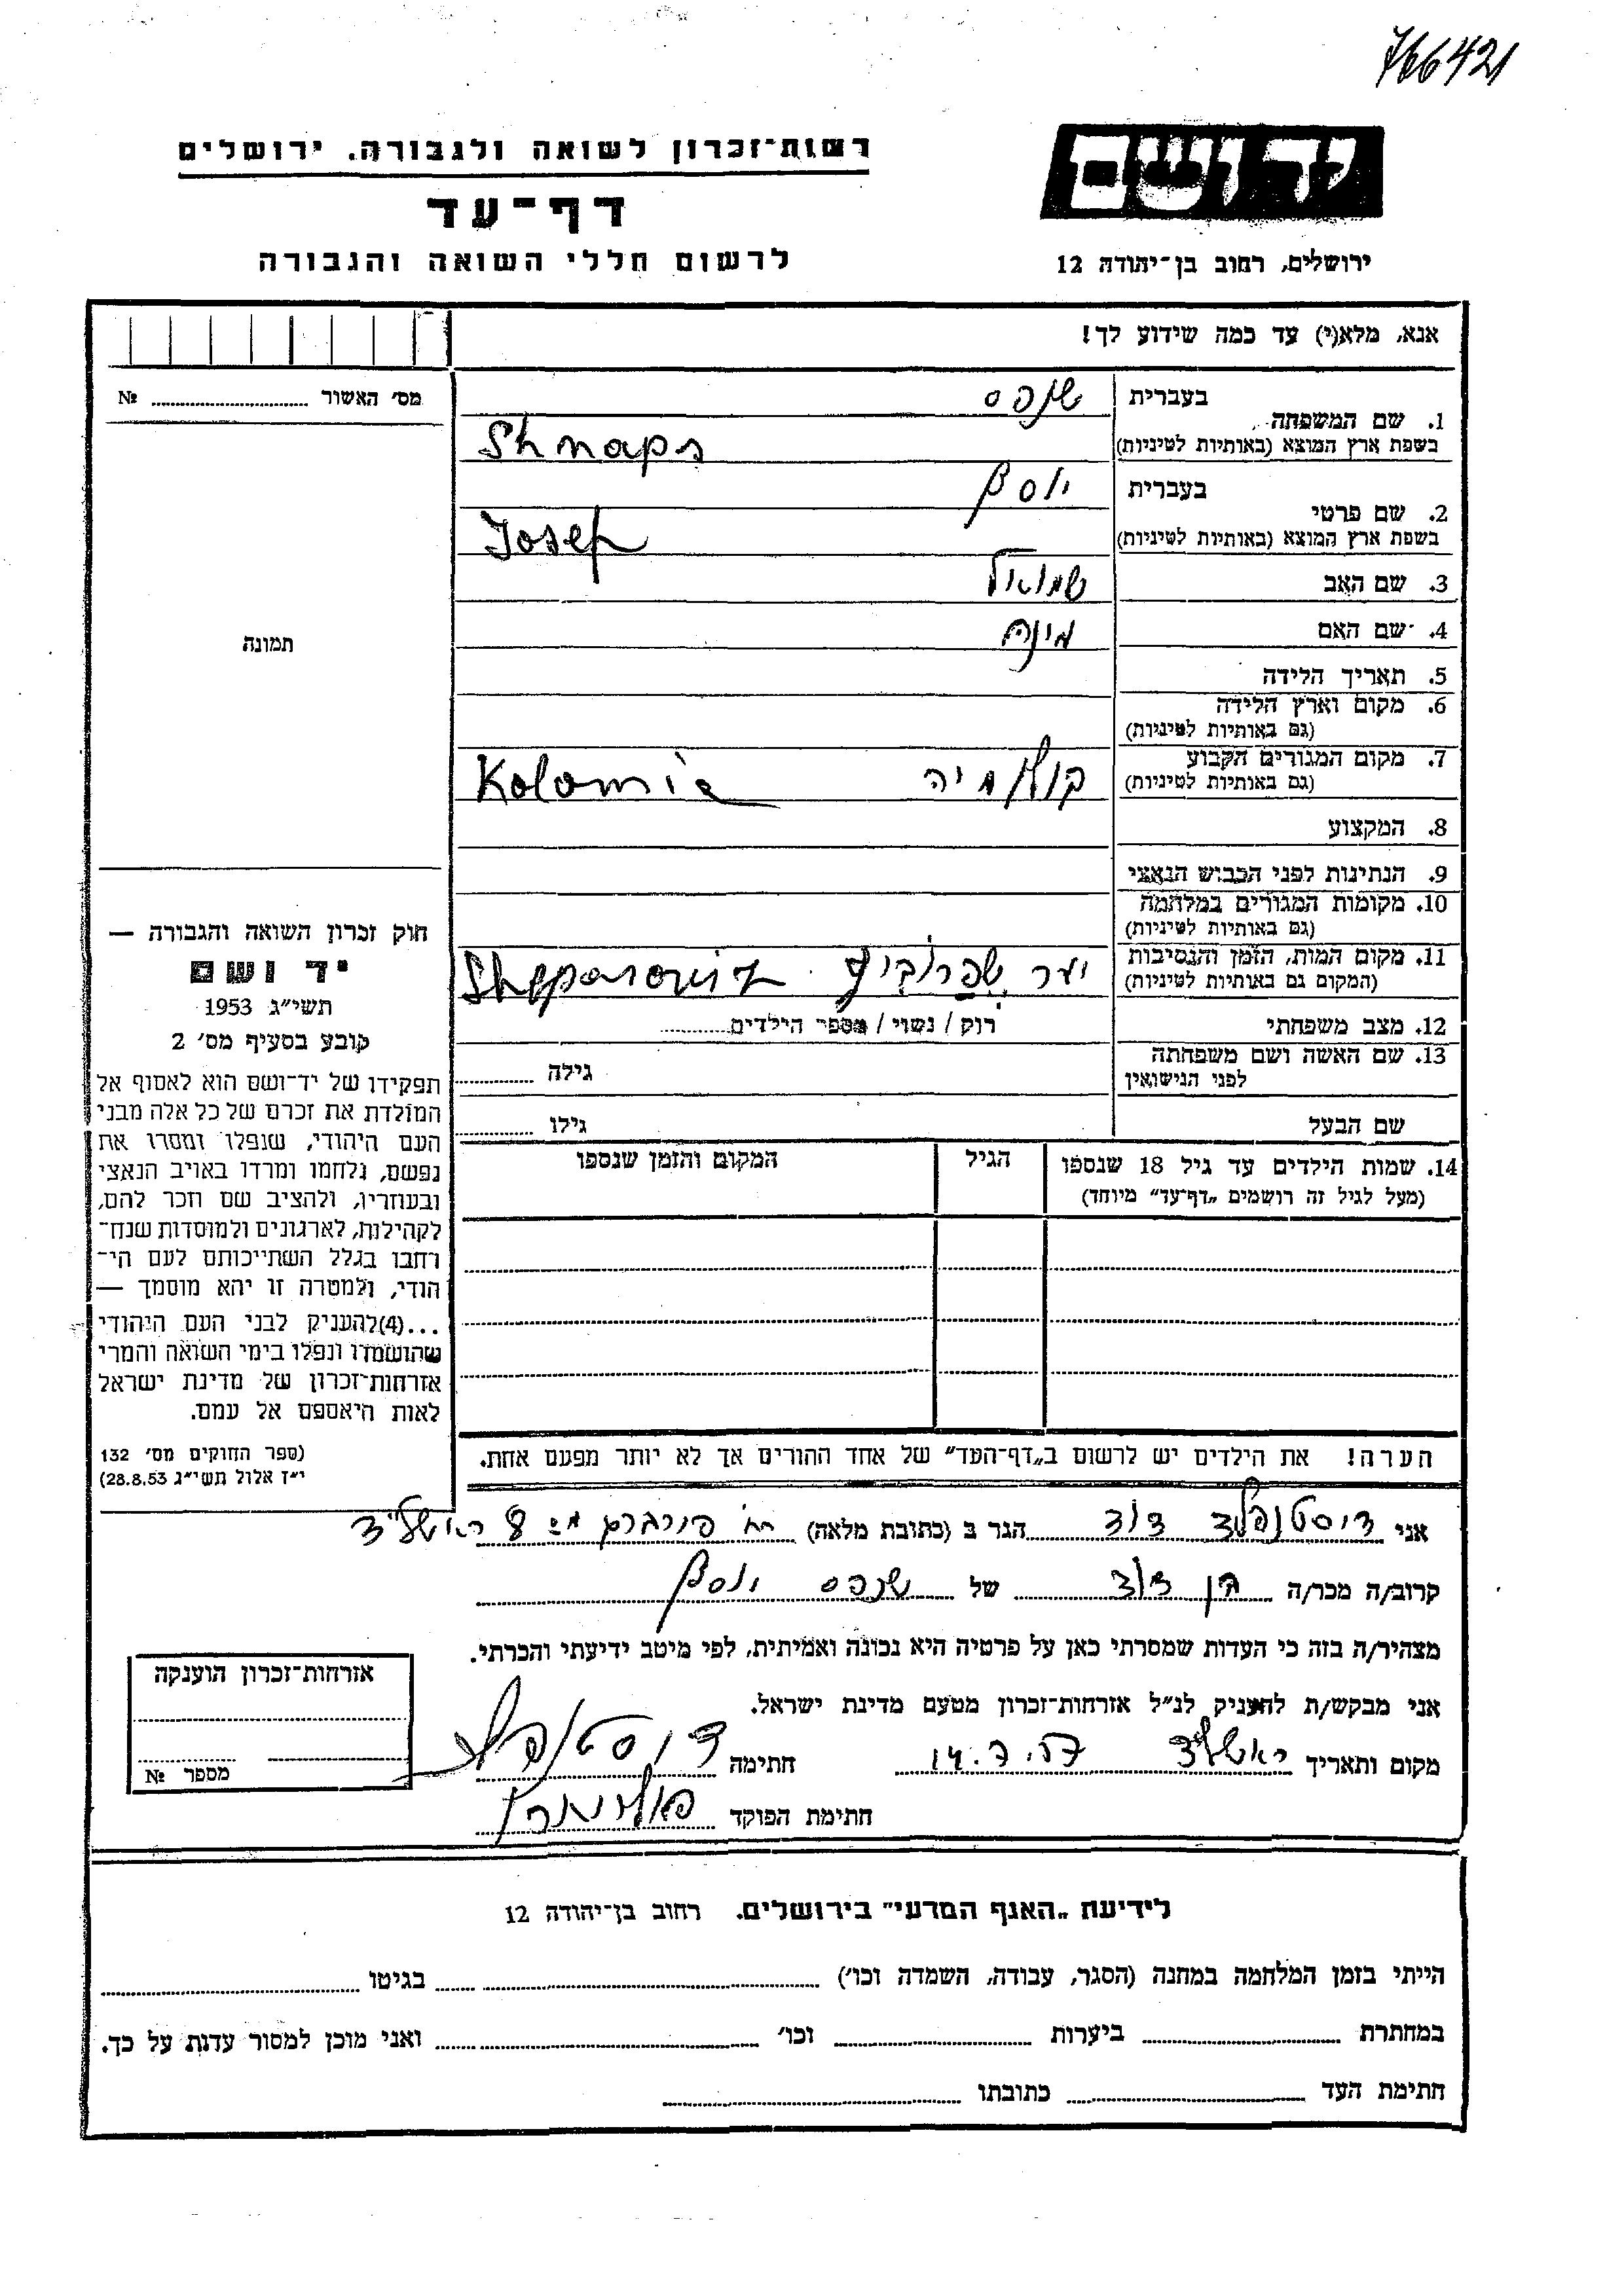 766421
יד ושם
רשות־זכרון לשואה ולגבורה. ירושלים
דף־עד
לרשום חללי השואה והגבורה
ירושלים, רחוב בן־יהודה 12
אנא, מלא(י) עד כמה שידוע לך!
מס׳ האשור № ..........
תמונה
1. שם המשפחה
בעברית שנפס
בשפת ארץ המוצא (באותיות לטיניות) Shnaps
2. שם פרטי
בעברית יוסף
בשפת ארץ המוצא (באותיות לטיניות) Josef
3. שם האב שמואל
4. שם האם מינה
5. תאריך הלידה
6. מקום וארץ הלידה
(גם באותיות לטיניות)
7. מקום המגורים הקבוע
(גם באותיות לטיניות) קולומיה Kolomia
8. המקצוע
9. הנתינות לפני הכבוש הנאצי
10. מקומות המגורים במלחמה
(גם באותיות לטיניות)
11. מקום המות, הזמן והנסיבות
(המקום גם באותיות לטיניות) יער שפרוביץ Shepparowitz
12. מצב משפחתי רוק / נשוי / מספר הילדים..........
13. שם האשה ושם משפחתה
לפני הנישואין גילה ..........
שם הבעל גילו ..........
14. שמות הילדים עד גיל 18 שנספו
(מעל לגיל זה רושמים „דף־עד״ מיוחד)
הגיל
המקום והזמן שנספו
הערה! את הילדים יש לרשום ב„דף־העד״ של אחד ההורים אך לא יותר מפעם אחת.
חוק זכרון השואה והגבורה —
יד ושם
תשי״ג 1953
קובע בסעיף מס׳ 2
תפקידו של יד־ושם הוא לאסוף אל
המולדת את זכרם של כל אלה מבני
העם היהודי, שנפלו ומסרו את
נפשם, נלחמו ומרדו באויב הנאצי
ובעוזריו, ולהציב שם וזכר להם,
לקהילות, לארגונים ולמוסדות שנח־
רבו בגלל השתייכותם לעם הי־
הודי, ולמטרה זו יהא מוסמך —
...(4) להעניק לבני העם היהודי
שהושמדו ונפלו בימי השואה והמרי
אזרחות־זכרון של מדינת ישראל
לאות היאספם אל עמם.
(ספר החוקים מס׳ 132
י״ז אלול תשי״ג 28.8.53)
אני דוסטנפלד דוד הגר ב (כתובת מלאה) רח׳ 8 ראשל״צ
קרוב/ה מכר/ה בן דוד של שנפס יוסף
מצהיר/ה בזה כי העדות שמסרתי כאן על פרטיה היא נכונה ואמיתית, לפי מיטב ידיעתי והכרתי.
אני מבקש/ת להעניק לנ״ל אזרחות־זכרון מטעם מדינת ישראל.
מקום ותאריך ראשל״צ חתימה
חתימת הפוקד
אזרחות־זכרון הוענקה
מספר №
לידיעת „האגף המדעי״ בירושלים. רחוב בן־יהודה 12
הייתי בזמן המלחמה במחנה (הסגר, עבודה, השמדה וכו׳) .......... בגיטו ..........
במחתרת .......... ביערות .......... וכו׳ .......... ואני מוכן למסור עדות על כך.
חתימת העד .......... כתובתו ..........